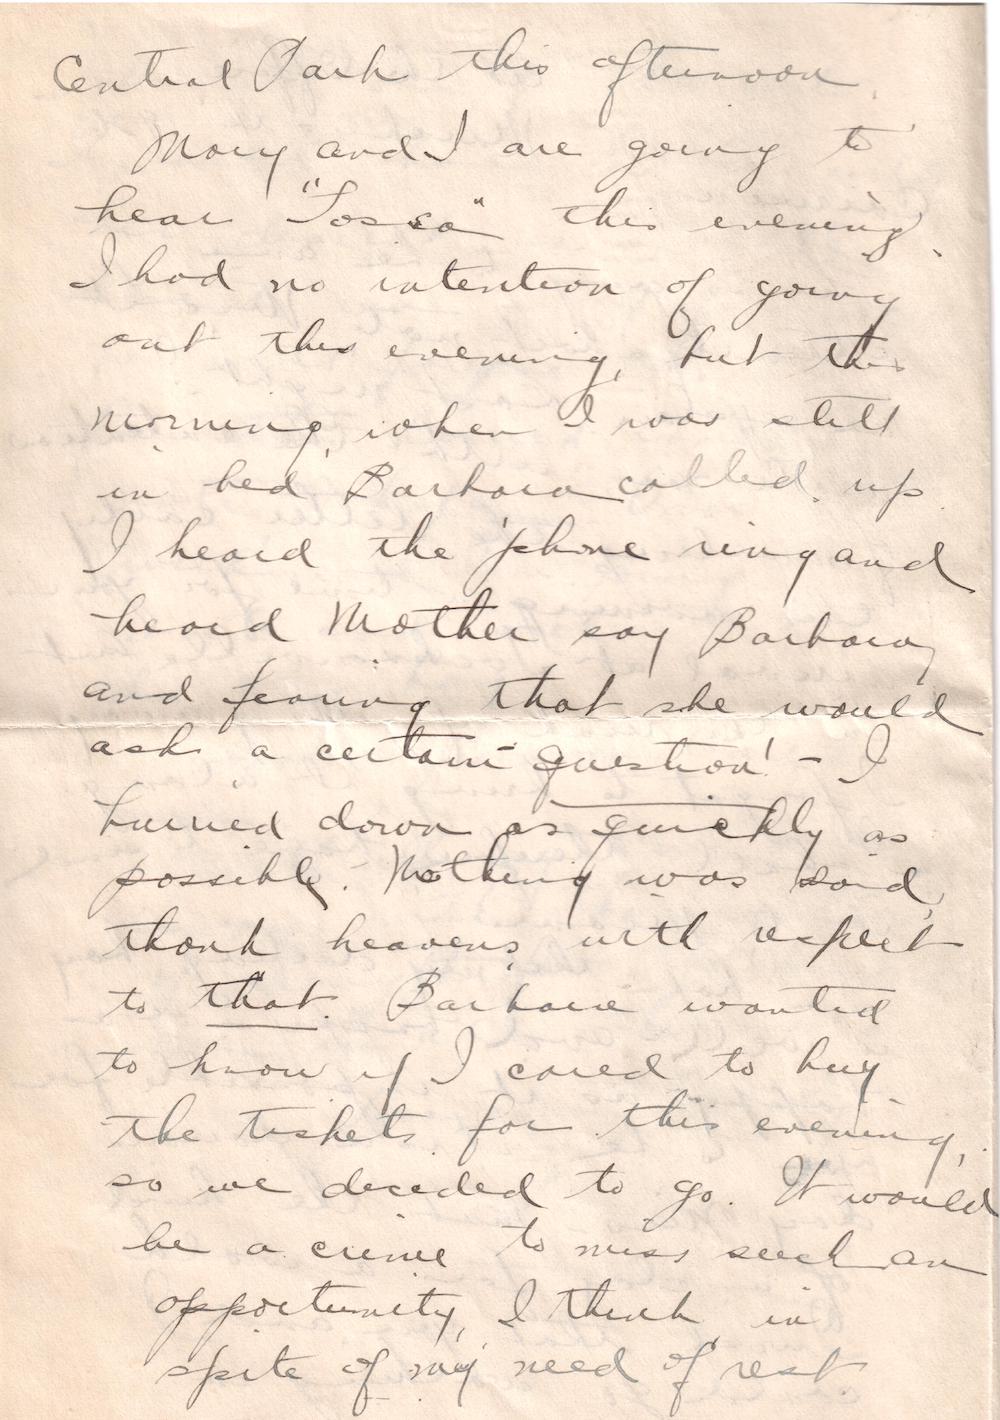 Central Park this afternoon.
Mary and I are going to
hear "Tosca" this evening.
I had no intention of going
out this evening, but this
morning, when I was still
in bed Barbara called up.
I heard the 'phone ring and
heard Mother say Barbara,
and fearing that she would
ask a certain question! - I
hurried down as quickly as
possible. Nothing was said,
thank heavens, with respect
to that. Barbara wanted
to know if I cared to buy
the tickets for this evening,
so we decided to go. It would
be a crime to miss such an
opportunity, I think in
spite of my need of rest.